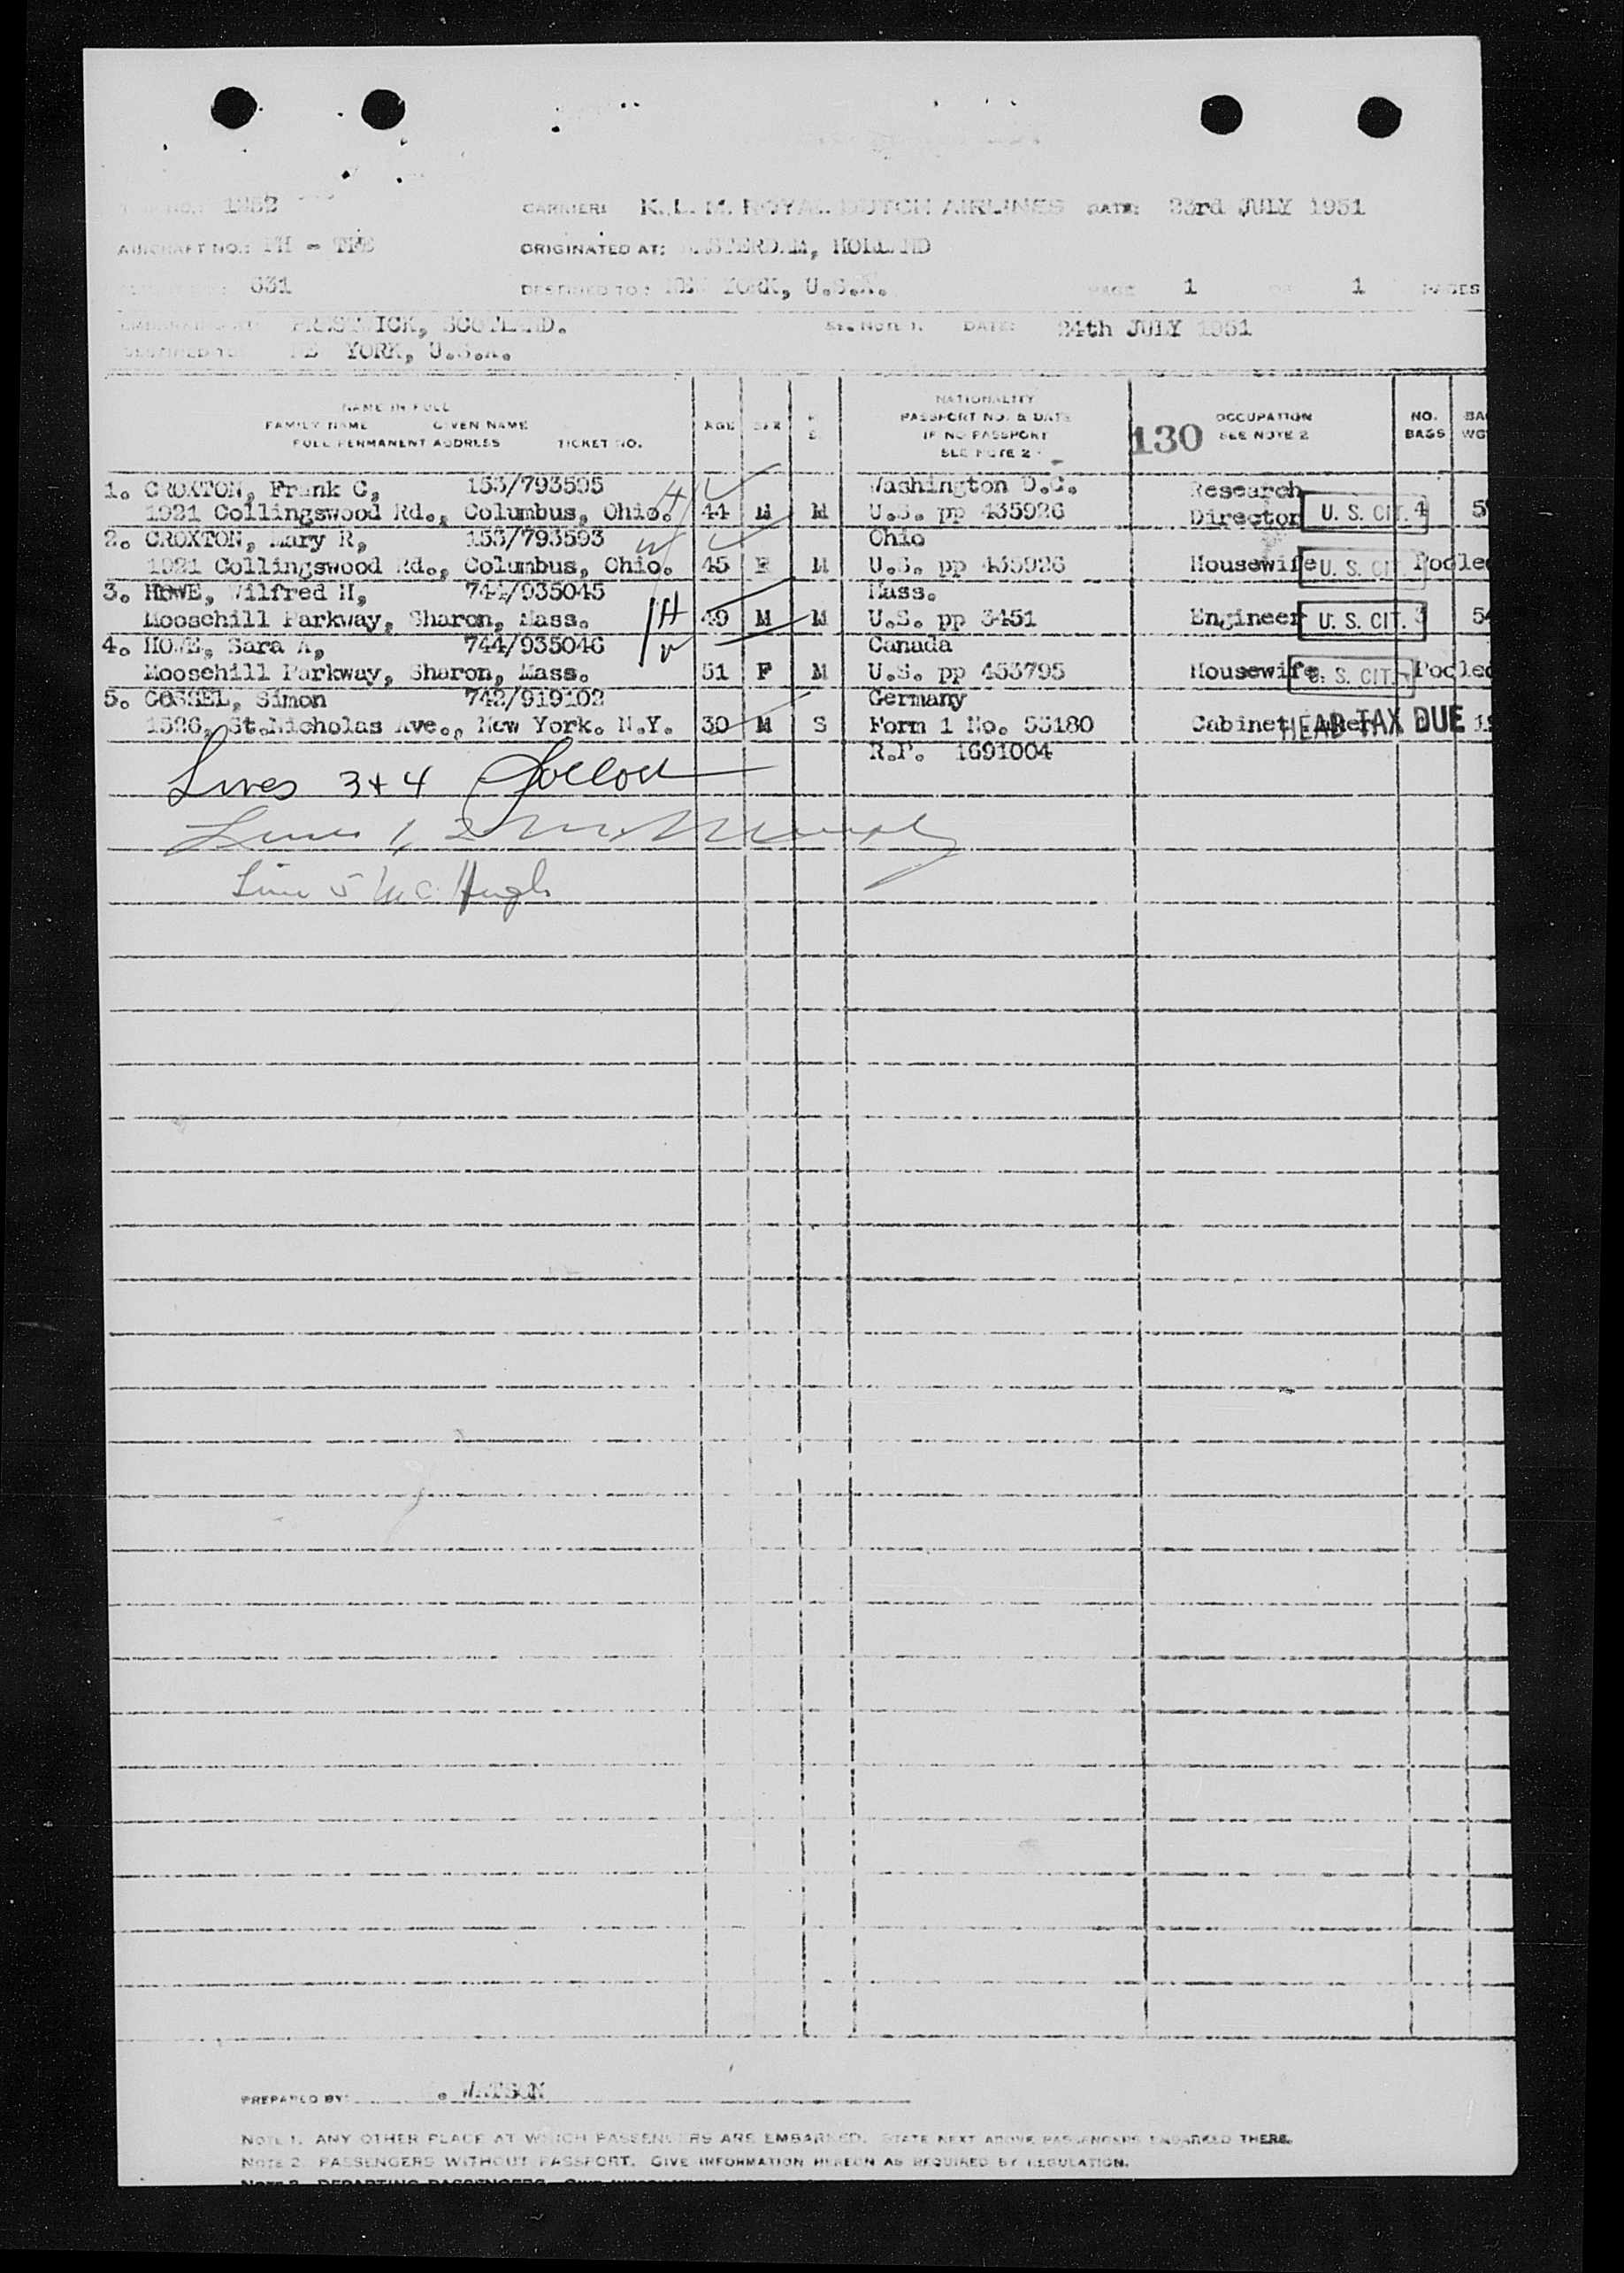 1252 CARRIER: K.L.M. ROYAL DUTCH AIRLINES DATE: 23rd JULY 1951
AIRCRAFT NO.: PH - TFE ORIGINATED AT: AMSTERDAM, HOLLAND
631 DESTINED TO: NEW YORK, U.S.A. PAGE 1 OF 1 PAGES
PRESTWICK, SCOTLAND. SEE NOTE 1. DATE: 24th JULY 1951
DESTINED TO NEW YORK, U.S.A.
NAME IN FULL
FAMILY NAME GIVEN NAME
FULL PERMANENT ADDRESS TICKET NO.
AGE SEX
NATIONALITY
PASSPORT NO. & DATE
IF NO PASSPORT
SEE NOTE 2
130 OCCUPATION
SEE NOTE 2
NO.
BAGS
BA
WG
1. CROXTON, Frank C, 153/793595 H Washington D.C. Research
1921 Collingswood Rd., Columbus, Ohio. 44 M M U.S. pp 435926 Director U. S. CIT. 4 5
2. CROXTON, Mary R, 153/793593 W Ohio
1921 Collingswood Rd., Columbus, Ohio. 45 F M U.S. pp 435926 Housewife U. S. CIT. Pooled
3. HOWE, Wilfred H, 744/935045 H Mass.
Moosehill Parkway, Sharon, Mass. 49 M M U.S. pp 3451 Engineer U. S. CIT. 3 54
4. HOWE, Sara A, 744/935046 W Canada
Moosehill Parkway, Sharon, Mass. 51 F M U.S. pp 453795 Housewife U. S. CIT. Pooled
5. COSSEL, Simon 742/919102 Germany
1526, St.Nicholas Ave., New York. N.Y. 30 M S Form 1 No. 55180 Cabinet Maker HEAD TAX DUE
R.P. 1691004
Lines 3+4
Lines 1, 2
Line 5 McHugh
PREPARED BY: WATSON
NOTE 1. ANY OTHER PLACE AT WHICH PASSENGERS ARE EMBARKED. STATE NEXT ABOVE PASSENGERS EMBARKED THERE.
NOTE 2. PASSENGERS WITHOUT PASSPORT. GIVE INFORMATION HEREON AS REQUIRED BY REGULATION.
NOTE 3. DEPARTING PASSENGERS.